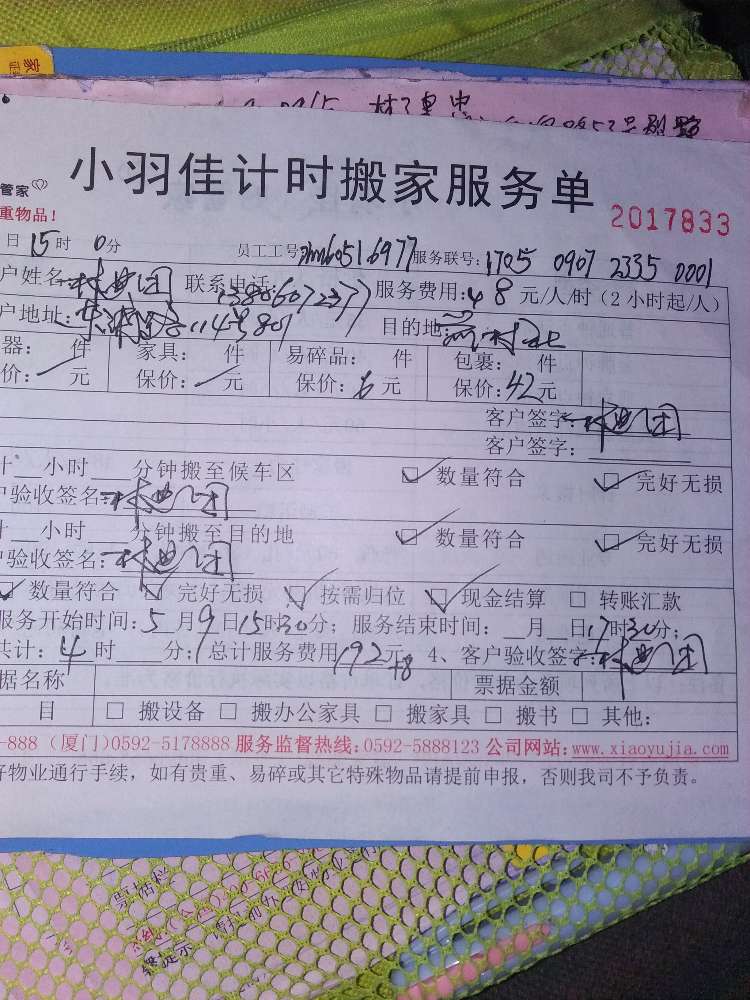 家
小羽佳计时搬家服务单
管家
重物品！
2017833
日15时 0分 员工工号 服务联号：1705 0907 2335 0001
户姓名 联系电话： 服务费用：48元/人/时（2小时起/人）
户地址： 114号801 目的地：
器： 件 家具： 件 易碎品： 件 包裹： 件
价：／元 保价：／元 保价：6元 保价：42元
客户签字：
客户签字：
计 小时 分钟搬至候车区 ☑ 数量符合 ☑ 完好无损
户验收签名：
计 小时 分钟搬至目的地 ☑ 数量符合 ☑ 完好无损
户验收签名：
☑ 数量符合 ☑ 完好无损 ☑ 按需归位 ☑ 现金结算 □ 转账汇款
服务开始时间：5月9日15时30分；服务结束时间： 月 日17时30分；
共计：4时 分；总计服务费用192元+8 4、客户验收签字
据名称 票据金额
目 □ 搬设备 □ 搬办公家具 □ 搬家具 □ 搬书 □ 其他：
-888（厦门）0592-5178888 服务监督热线：0592-5888123 公司网站：www.xiaoyujia.com
好物业通行手续，如有贵重、易碎或其它特殊物品请提前申报，否则我司不予负责。
票据栏